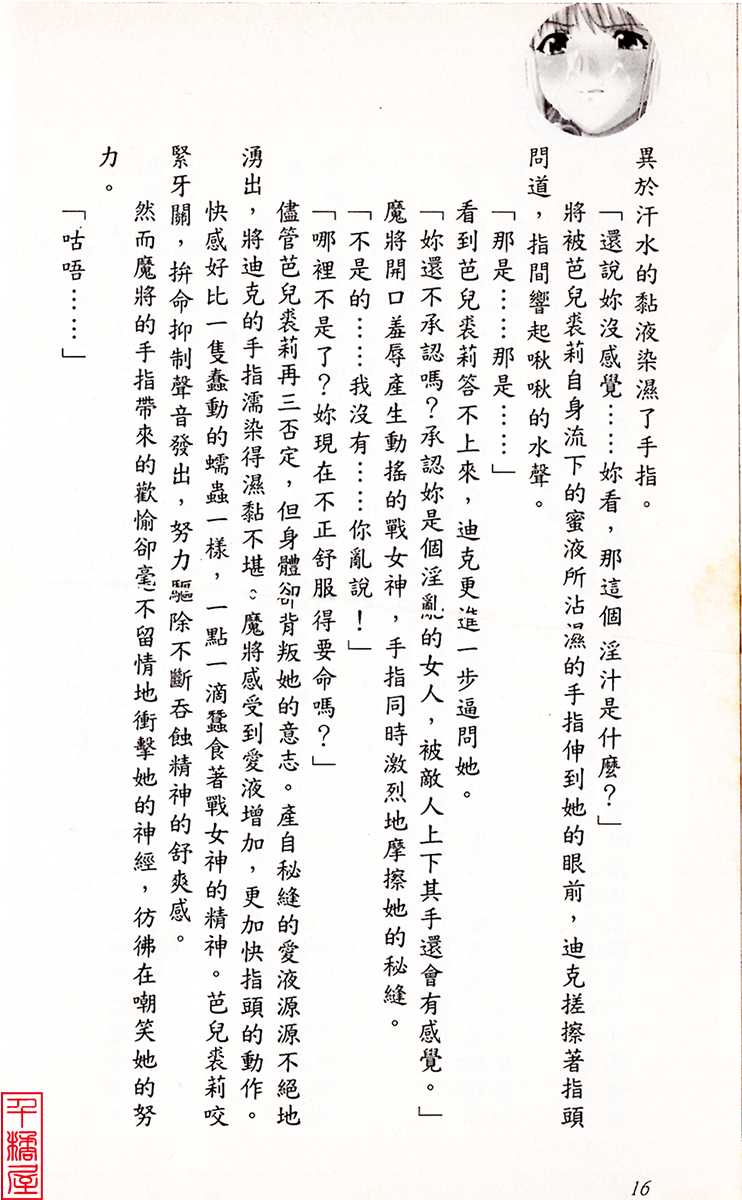 異於汗水的黏液染濕了手指。
「還說妳沒感覺……妳看，那這個淫汁是什麼？」
將被芭兒裘莉自身流下的蜜液所沾濕的手指伸到她的眼前，迪克搓擦著指頭
問道，指間響起啾啾的水聲。
「那是……那是……」
看到芭兒裘莉答不上來，迪克更進一步逼問她。
「妳還不承認嗎？承認妳是個淫亂的女人，被敵人上下其手還會有感覺。」
魔將開口羞辱產生動搖的戰女神，手指同時激烈地摩擦她的秘縫。
「不是的……我沒有……你亂說！」
「哪裡不是了？妳現在不正舒服得要命嗎？」
儘管芭兒裘莉再三否定，但身體卻背叛她的意志。產自秘縫的愛液源源不絕地
湧出，將迪克的手指濡染得濕黏不堪；魔將感受到愛液增加，更加快指頭的動作。
快感好比一隻蠢動的蠕蟲一樣，一點一滴蠶食著戰女神的精神。芭兒裘莉咬
緊牙關，拚命抑制聲音發出，努力驅除不斷吞蝕精神的舒爽感。
然而魔將的手指帶來的歡愉卻毫不留情地衝擊她的神經，彷彿在嘲笑她的努
力。
「咕唔……」
16
千橘屋